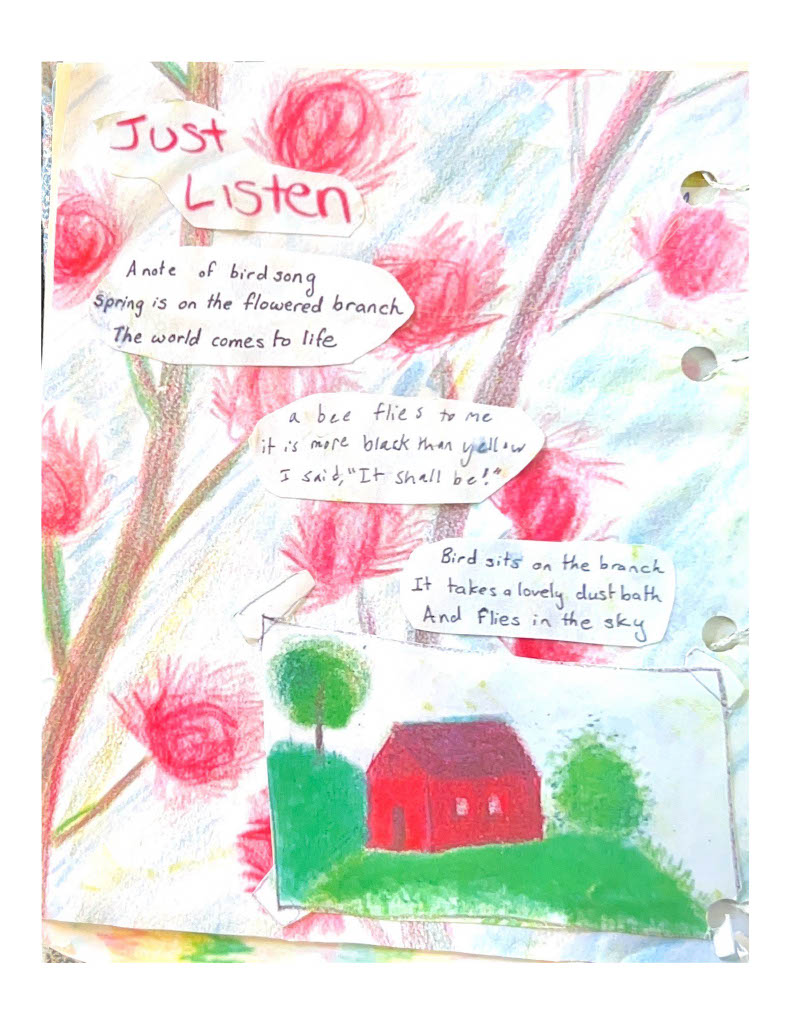 Just
Listen
A note of bird song
Spring is on the flowered branch
The world comes to life
a bee flies to me
it is more black than yellow
I said, "It shall be!"
Bird sits on the branch
It takes a lovely dust bath
And flies in the sky